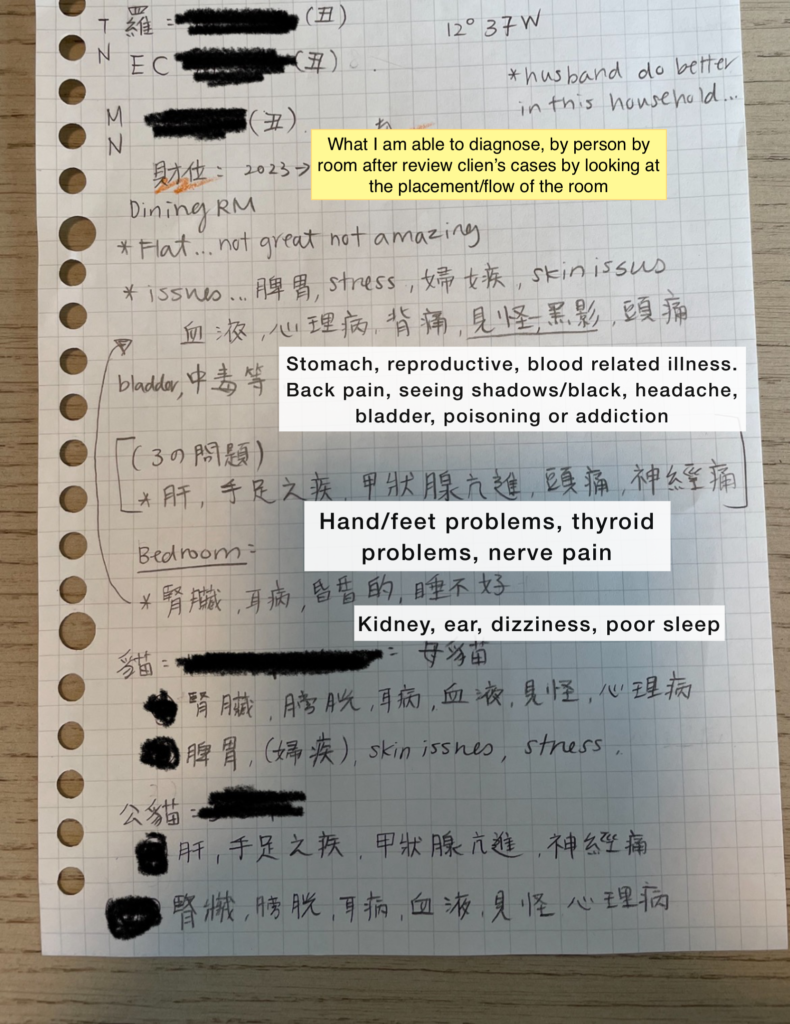 T 羅: (丑) 12° 37 W
N EC (丑)
*husband do better
in this household...
M
N (丑).
財位: 2023→
What I am able to diagnose, by person by
room after review clien's cases by looking at
the placement/flow of the room
Dining RM
* Flat... not great not amazing
* issues... 脾胃, stress, 婦女疾, skin issus
血液, 心理病, 背痛, 見怪, 黑影, 頭痛
bladder, 中毒等
Stomach, reproductive, blood related illness.
Back pain, seeing shadows/black, headache,
bladder, poisoning or addiction
(3の問題)
* 肝, 手足之疾, 甲狀腺亢進, 頭痛, 神經痛
Hand/feet problems, thyroid
problems, nerve pain
Bedroom:
* 腎臟, 耳病, 昏昏的, 睡不好
Kidney, ear, dizziness, poor sleep
貓: = 母貓
腎臟, 膀胱, 耳病, 血液, 見怪, 心理病
脾胃, (婦疾), skin issnes, stress.
公貓:
肝, 手足之疾, 甲狀腺亢進, 神經痛
腎臟, 膀胱, 耳病, 血液, 見怪 心理病